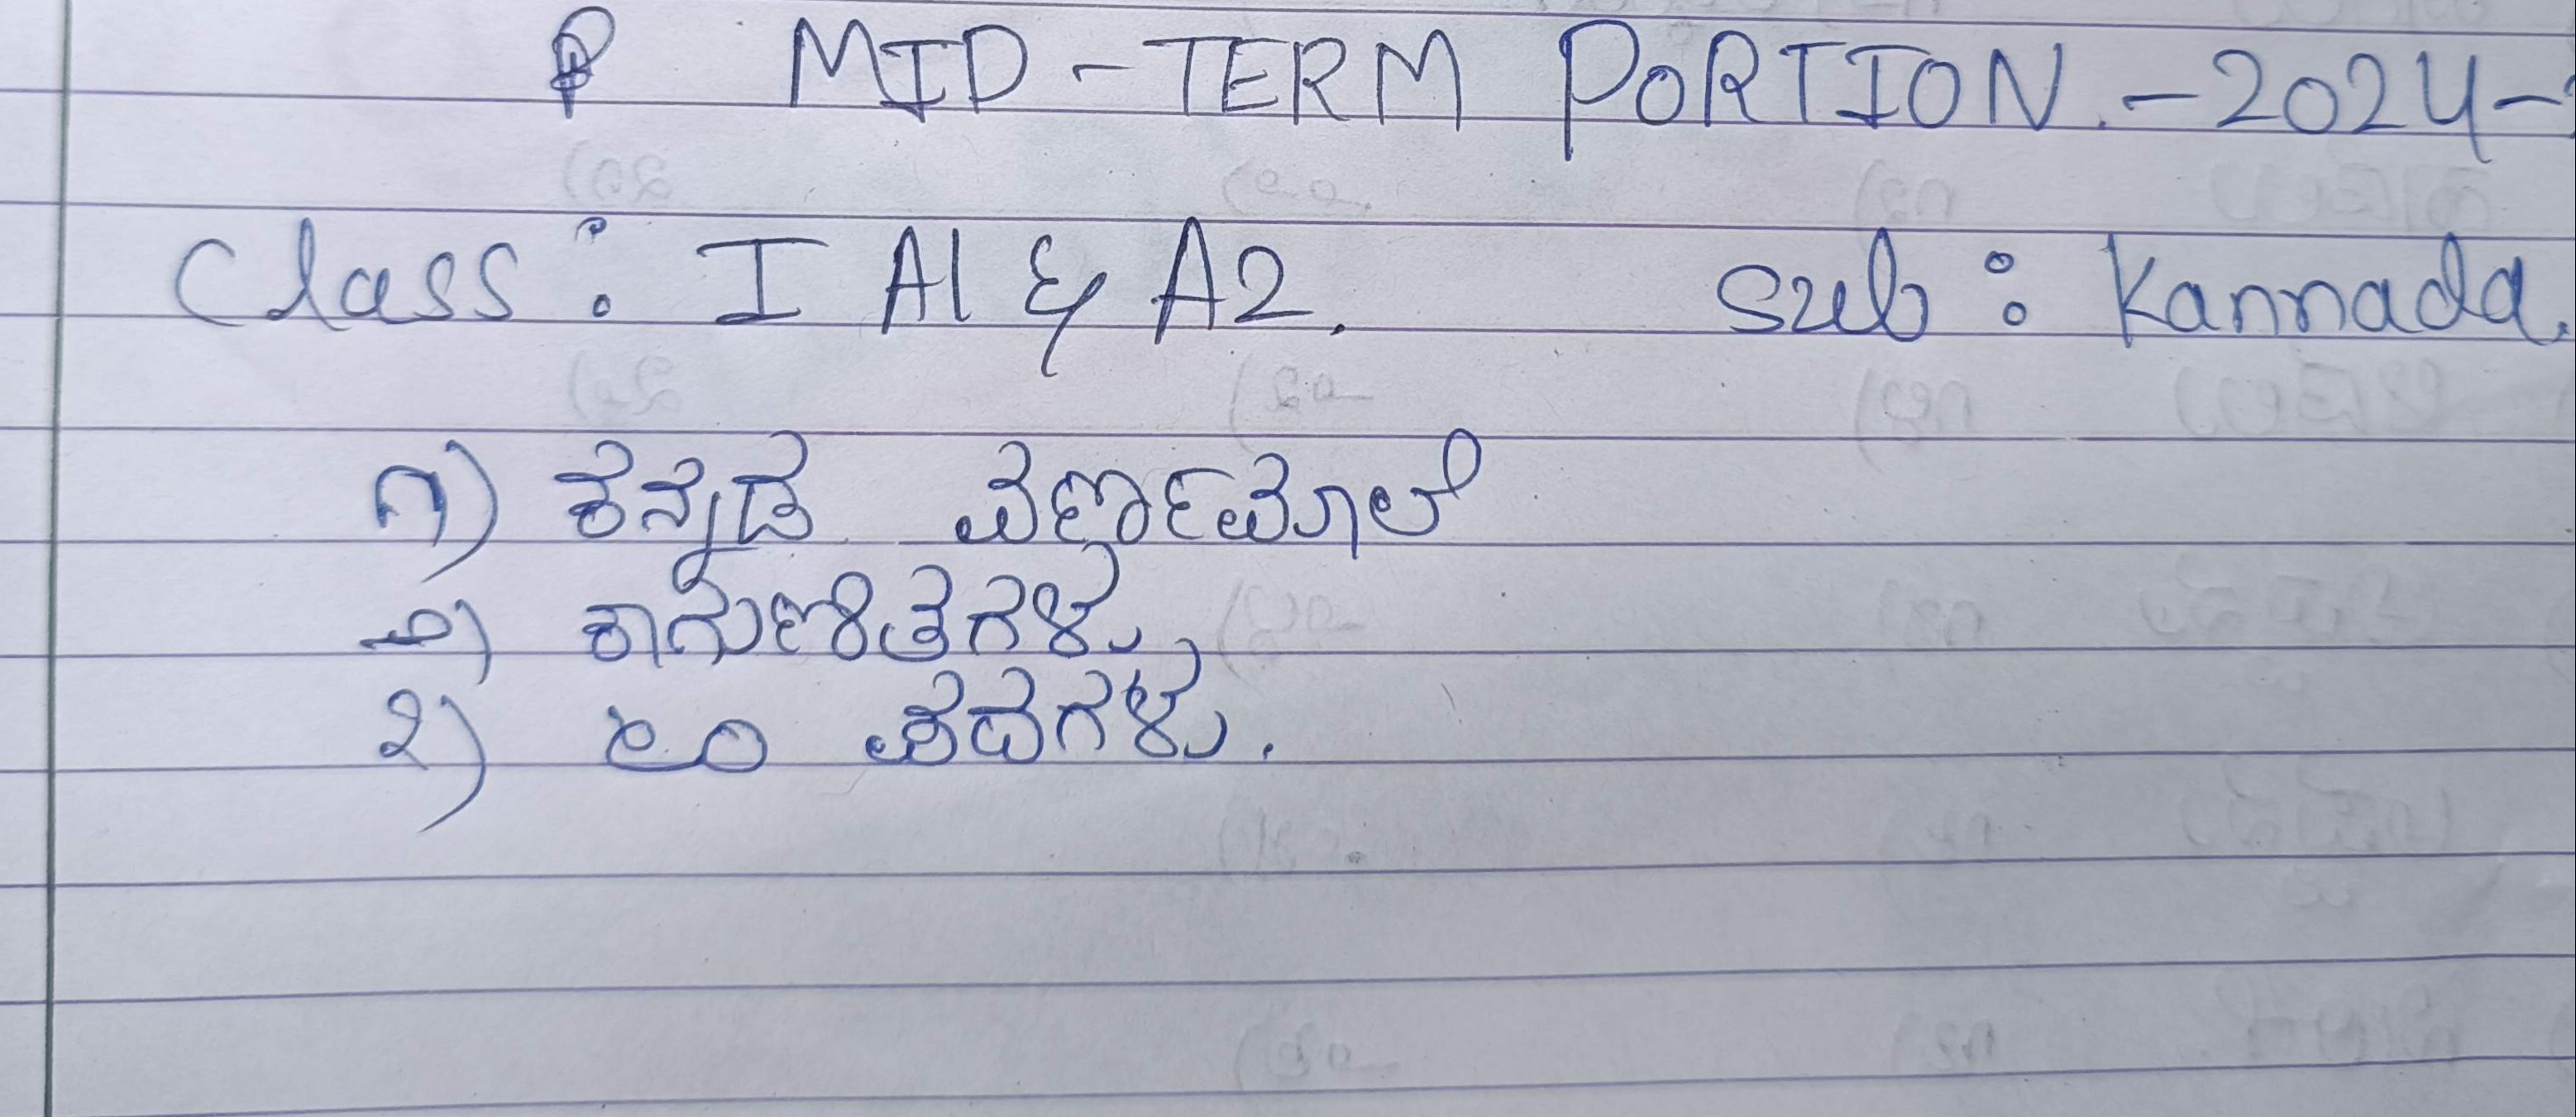 MID-TERM PORTION.-2024-
Class: I A1 & A2. Sub: Kannada.
೧) ಕನ್ನಡ ವರ್ಣಮಾಲೆ
೨) ಕಾಗುಣಿತಗಳು,
೩) ೪೦ ಪದಗಳು.